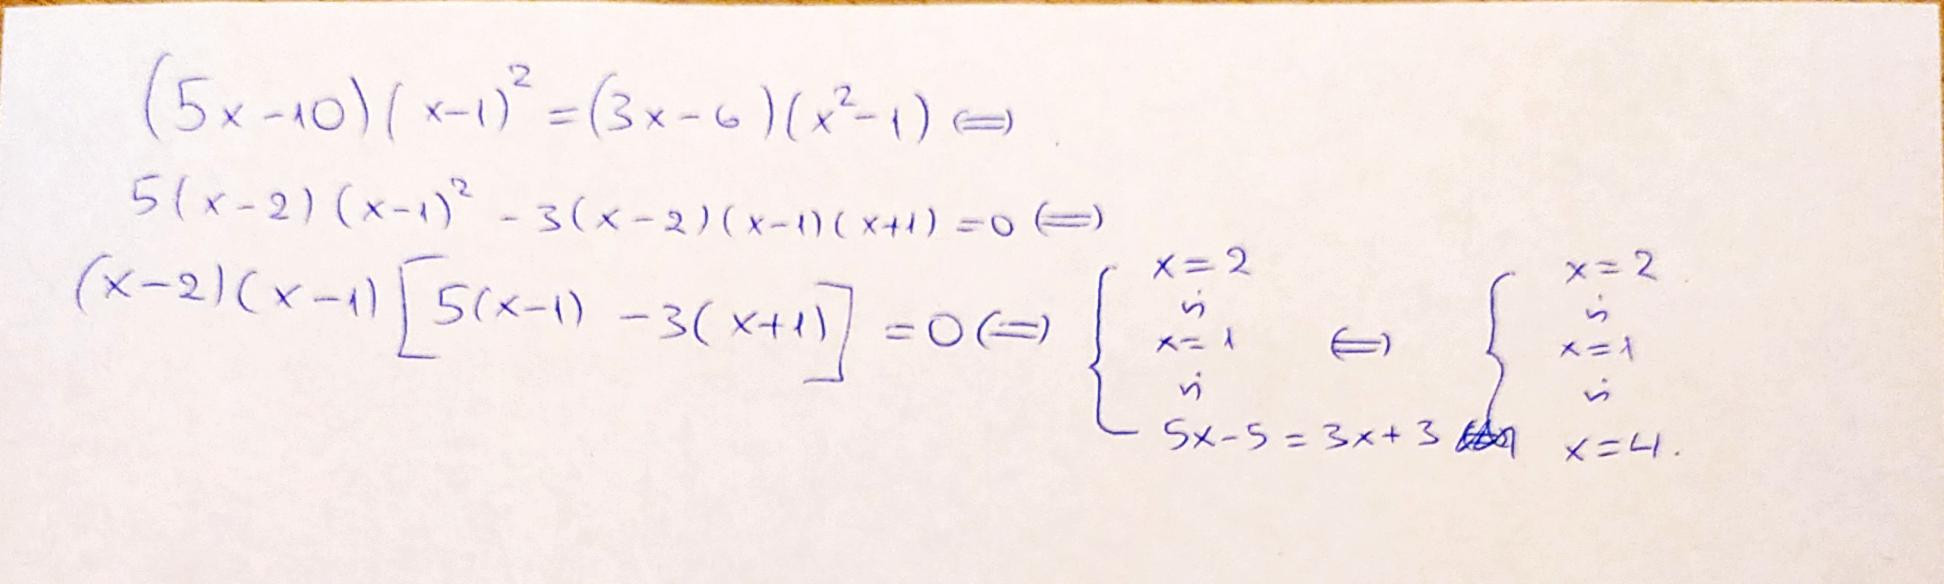 (5x-10)(x-1)² = (3x-6)(x²-1) ⇔
5(x-2)(x-1)² - 3(x-2)(x-1)(x+1) = 0 ⇔
(x-2)(x-1)[5(x-1) - 3(x+1)] = 0 ⇔ { x=2 ή x=1 ή 5x-5 = 3x+3 ⇔ { x=2 ή x=1 ή x=4.